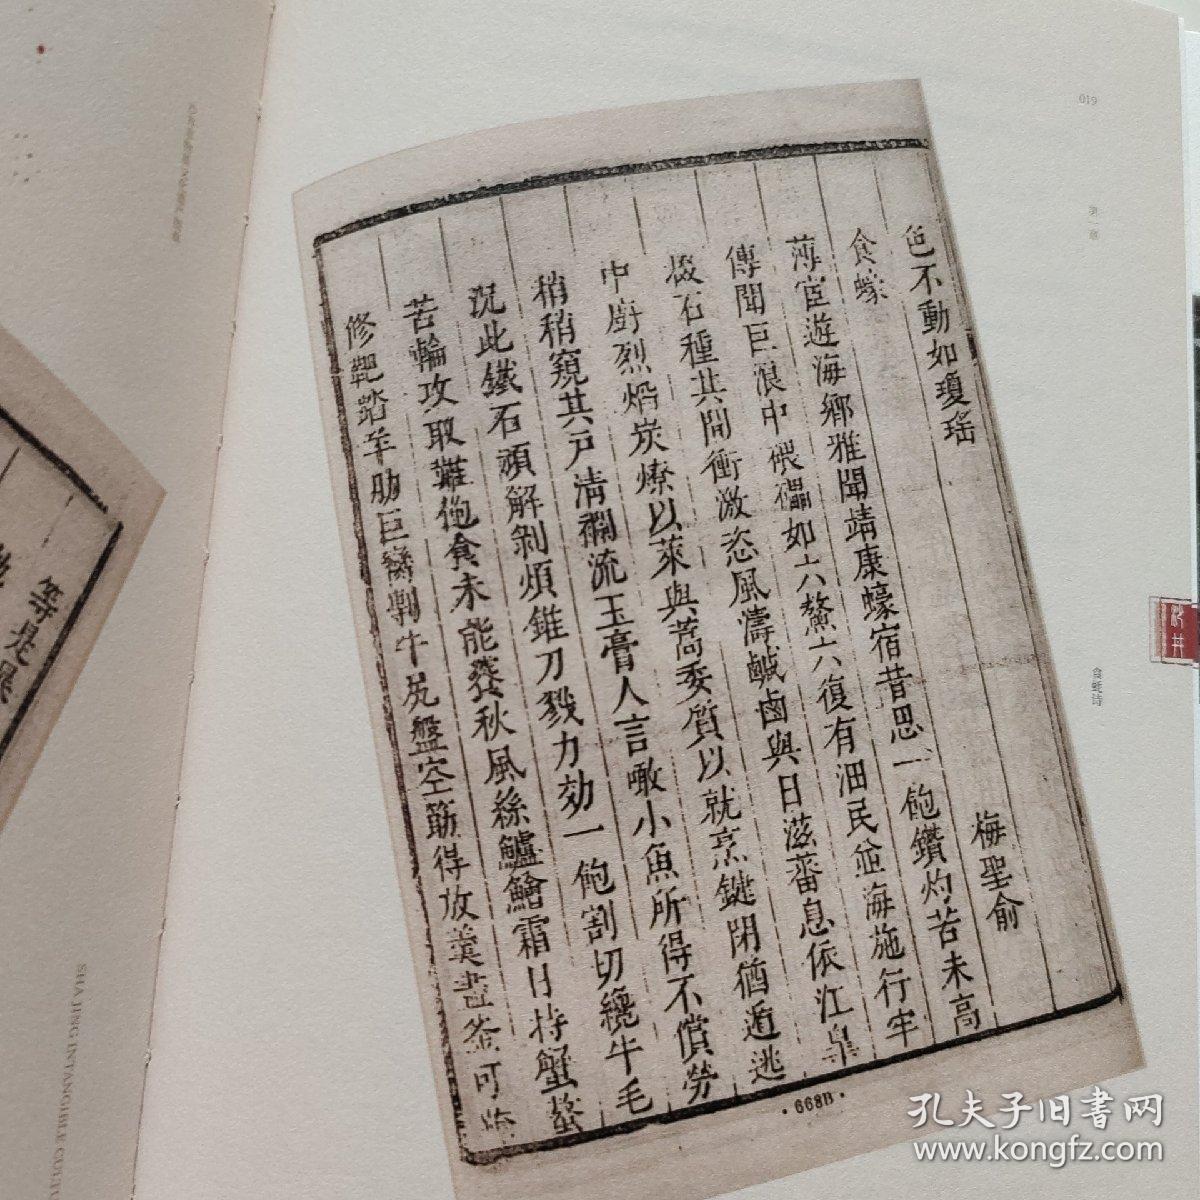 019
色不動如瓊瑤
食蠔
梅聖俞
薄宦遊海鄉雅聞靖康蠔宿昔思一飽鑽灼苦未高
傳聞巨浪中碨礧如六鰲亦復有沺民並海施行牢
掇石種其間衝激恣風濤鹹鹵與日滋蕃息依江皐
中厨烈焰炭燎以萊與蒿委質以就烹鍵閉猶遁逃
稍稍窺其戶清襴流玉膏人言噉小魚所得不償勞
況此鐵石頑解剝煩錐刀戮力効一飽割切纔牛毛
苦輪攻取難飽食未能饕秋風絲鱸鱠霜日持蟹螯
修靶踏羊肋巨臠剸牛尻盤空筯得放羹盡釜可
668B
食蚝诗
沙井
等是
SHA JING INTANGIBLE
孔夫子旧书网
www.kongfz.com